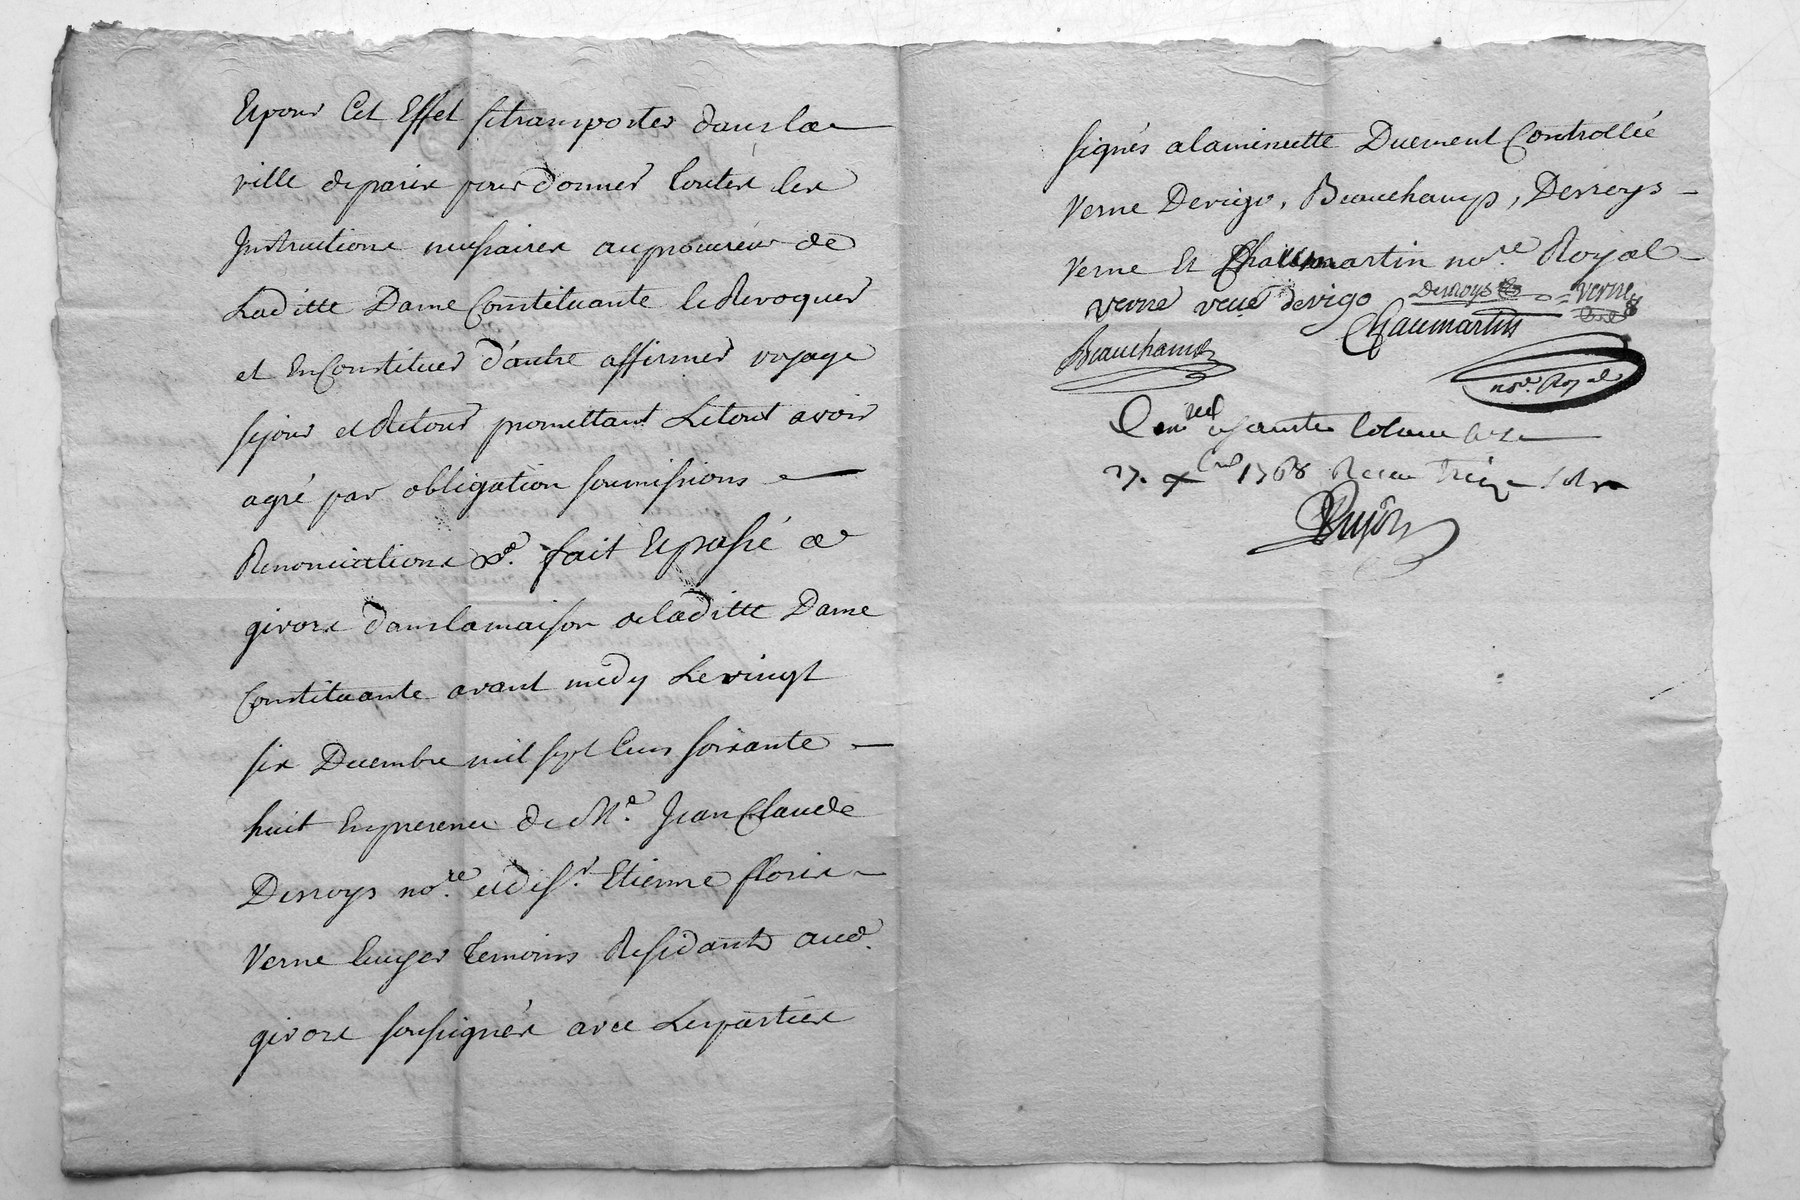 Et pour Cet Effet se transporter dans la
ville de paris pour donner toutes les
Instructions nessaires au procureur de
Laditte Dame Constituante le Revoquer
et En Constituer d'autre affirmer voyage
sejour et Retour promettant Le tout avoir
agré par obligation soumissions
Renonciations &c. fait Et passé a
givors dans la maison de laditte Dame
Constituante avant midy Le vingt
six Decembre mil sept Cens soixante
huit En presence de Me. Jean Claude
Desroys nore. et de sr. Etienne floris
Verne Ecuyer temoins Residants aud.
givors soussignés avec Les parties
signés a la minutte Duement Controllée
Verne Devigo, Beauchamp, Desroys
Verne Et Chaumartin nore. Royal
verne veue devigo Desroys Verne
Chaumartin
Beauchamp
nore. Royal
a sainte Colombe le
27. Xbre 1768 Recu treize sols